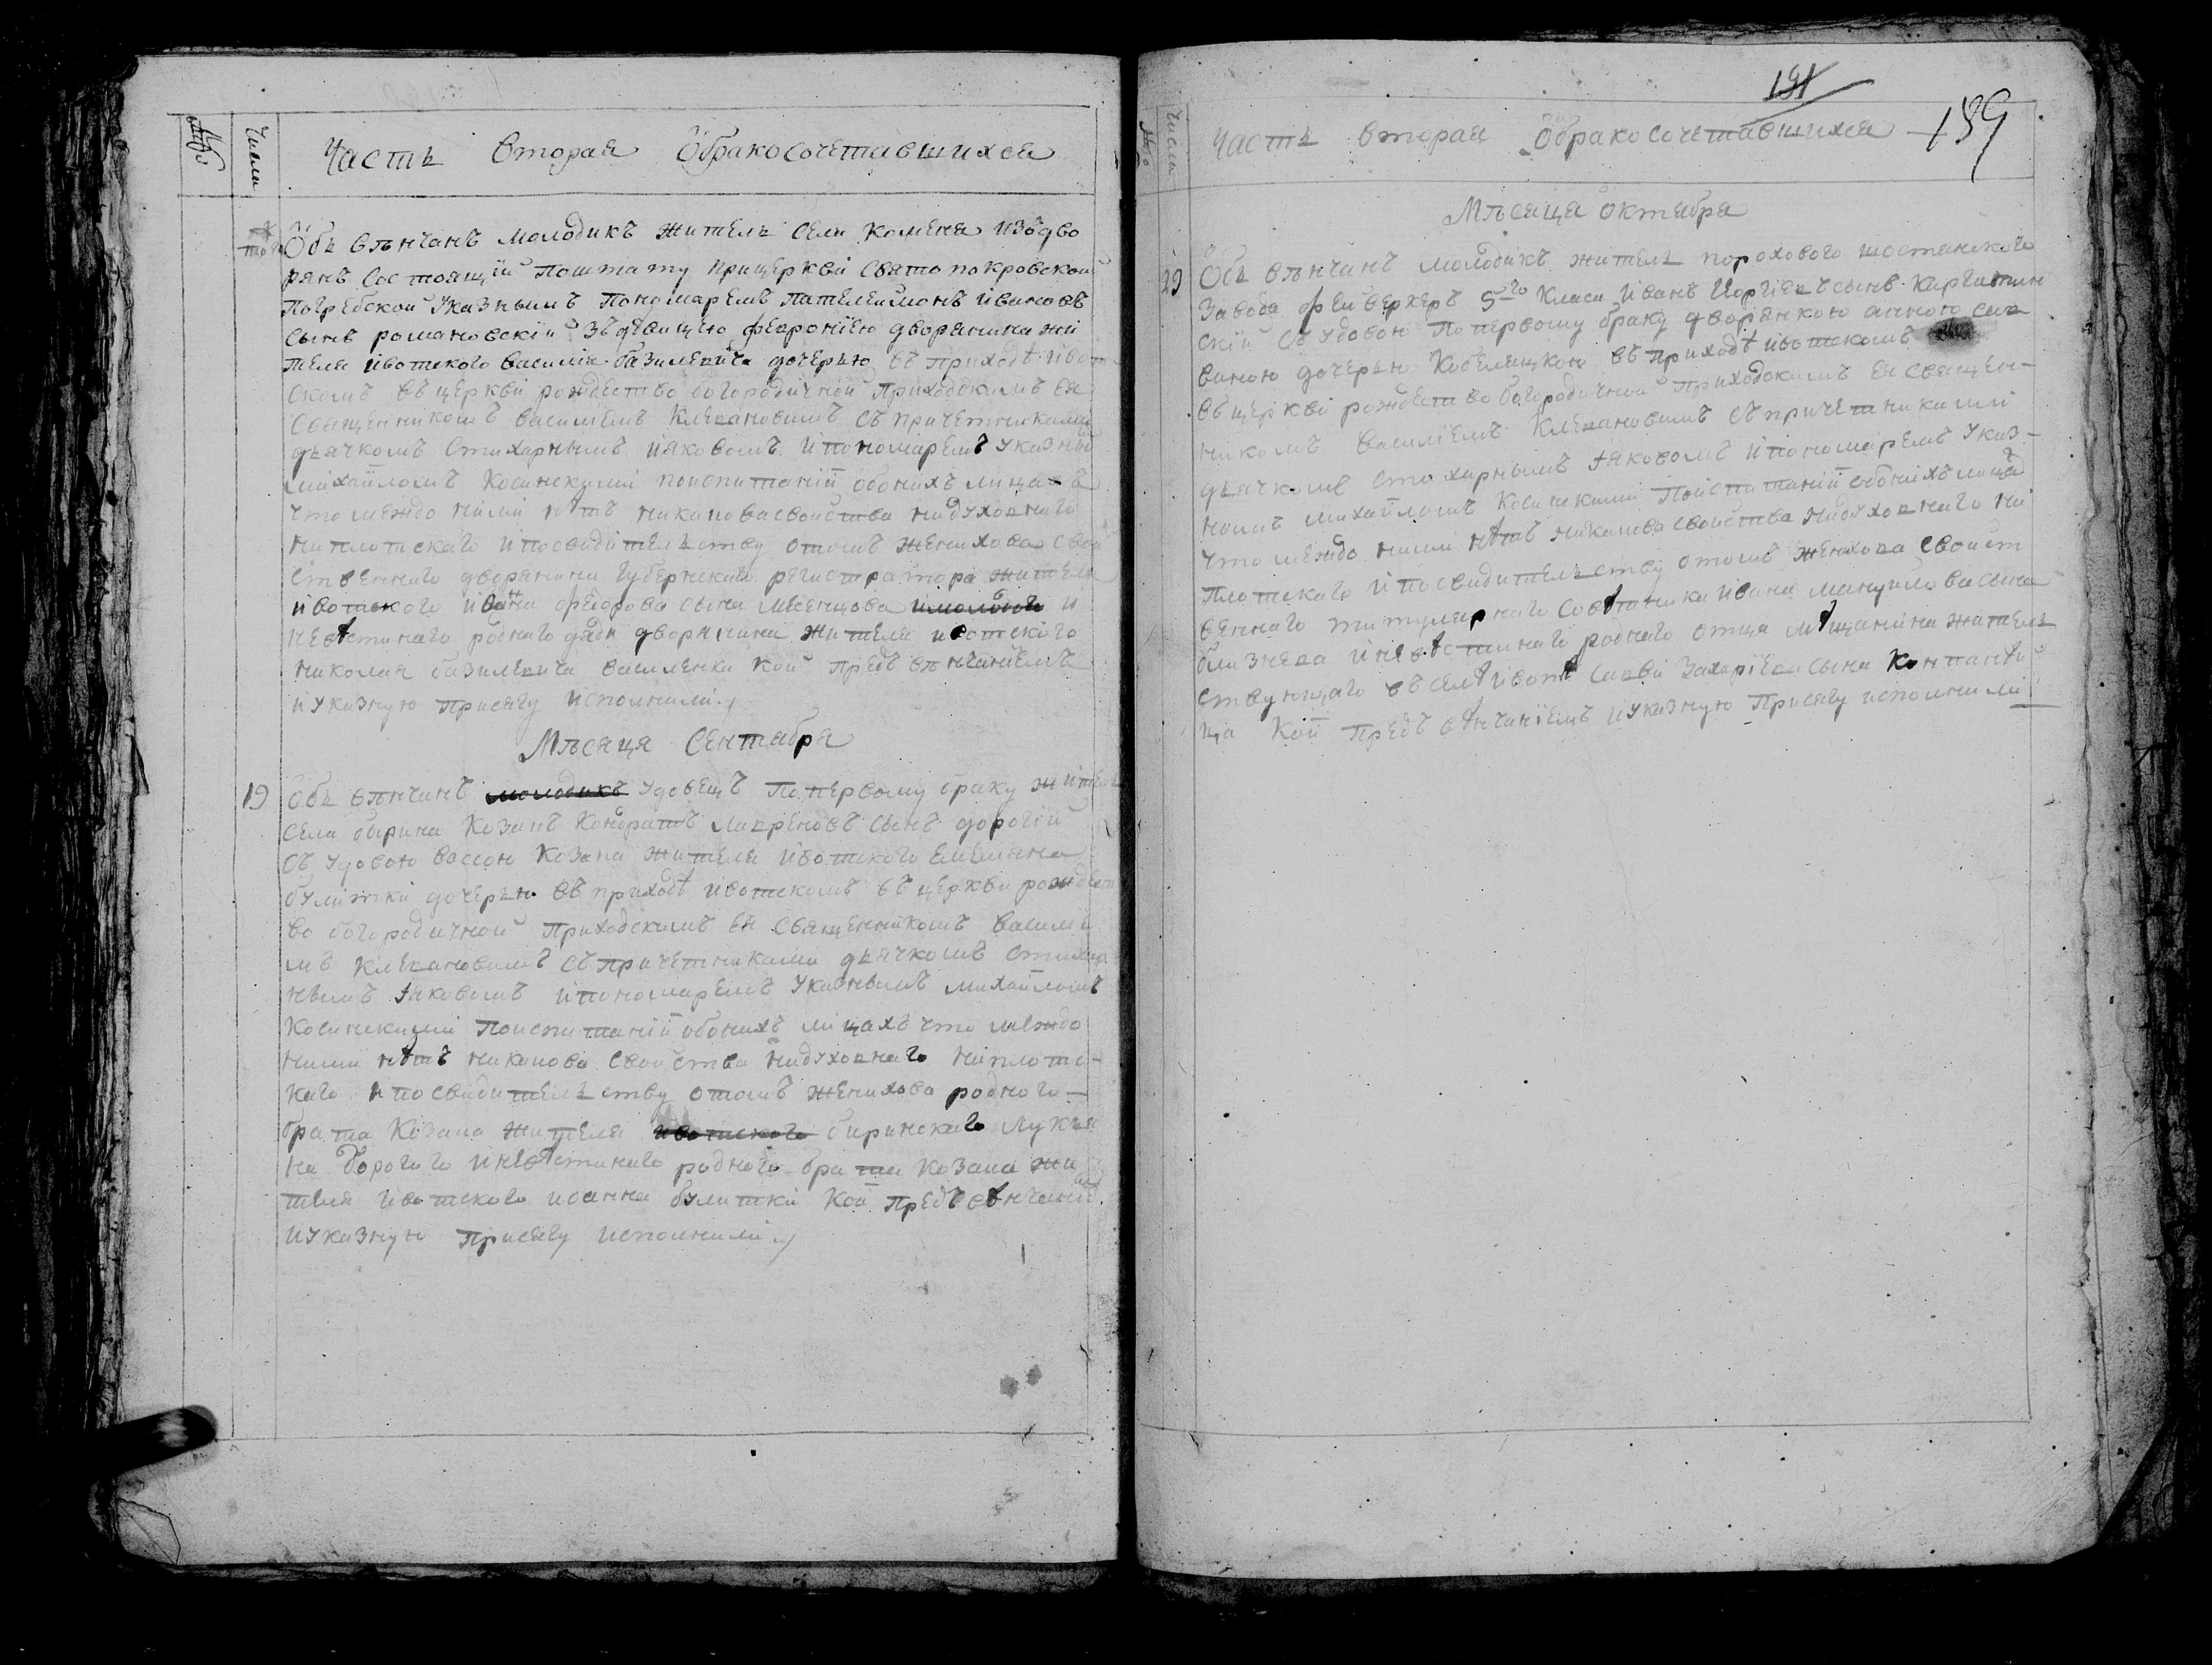 Числа
Часть вторая Обракосочетавшихся
Объ вѣнчанъ молодикъ житель села Коменя изъ дво
рянъ состоящїй поштату прицеркви Свято покровской
Погребской указнымъ пономаремъ пателеймонъ ивановъ
сынъ романовскїй зъ девицею феаронїею дворянина жи
теля ивотского василїя базилевича дочерью въ приходѣ ивот
скомъ въ церкви рождество богородичной приходскимъ ея
священникомъ василїемъ Клевановимъ съ причетниками
дьячкомъ стихарнымъ Иаковомъ и пономаремъ указным
михайломъ Косинскими поиспитанїи обоихъ лицахъ
что между ними нѣтъ никаково свойства ни духовнаго
ни плотскаго и посвидителству отомъ женихова свой
ственнаго дворянина губернского регистратора жителя
ивотского ивана федорова сына и
невѣстинаго родного дяди дворянина жителя ивотского
николая базилевича василенка кои предъ вѣнчанїемъ
и указную присягу исполнили
Мѣсяця Сентября
19 Объ вѣнчанъ молодикъ удовецъ по первому браку жител
села бирина козакъ Кондратъ лавреновъ сынъ дорогїй
съ удовою вассою козака жителя ивотского емеляна
булитки дочерью въ приходѣ ивотскомъ въ церкви рождест
во богородичной приходскимъ ея священникомъ василїе
мъ Клевановимъ съ причетниками дьячкомъ стихар
нымъ Іяковомъ и пономаремъ указнымъ михайломъ
Косинскими поиспитанїи обоихъ лицахъ что между
ними нѣтъ никаково свойства ни духовнаго ни плотс-
каго и посвидителству отомъ женихова родного-
брата козака жителя ивотского биринскаго Лукья
на дорогого и невѣстинаго родного брата козака жи
теля ивотского иоанна булитки кои предъ вѣнчанїемъ
и указную присягу исполнили
191
189
Числа
Часть вторая Обракосочетавшихся
Мѣсяця Октября
29 Объ вѣнчанъ молодикъ житель порохового шостенского
завода фейверкеръ 5го класа иванъ сынъ
скїй съ удовою по первому браку дворянкою анною сав
виною дочерью Кобеляцкою въ приходѣ ивотскомъ
въ церкви рождество богородичной приходскимъ ея священ-
никомъ василїемъ Клевановимъ съ причетниками
дьячкомъ стихарнымъ Іяковомъ и пономаремъ указ-
нымъ михайломъ Косинскими поиспитанїи обоихъ лицахъ
что между ними нѣтъ никаково свойства ни духовнаго ни
плотскаго и посвидителству отомъ женихова свойст
веннаго титулярнаго совѣтника ивана сына
близнева и невѣстинаго родного отца мѣщанина жител
ствующаго въ селѣ ивотѣ савви захарїева сына
ца кои предъ вѣнчанїемъ и указную присягу исполнили